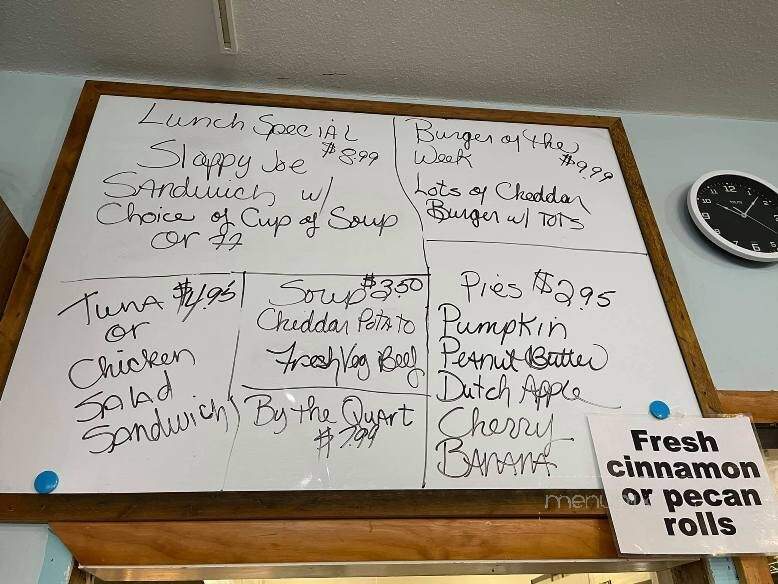 Lunch Special
Slappy Joe $8.99
Sandwich w/
Choice of Cup of Soup
or FF
Burger of the
Week $9.99
Lots of Cheddar
Burger w/ TOTS
Tuna $4.95
or
Chicken
Salad
Sandwich
Soup $3.50
Cheddar Potato
Fresh Veg Beef
By the Quart
$7.99
Pies $2.95
Pumpkin
Peanut Butter
Dutch Apple
Cherry
BANANA
Fresh
cinnamon
or pecan
rolls
menu